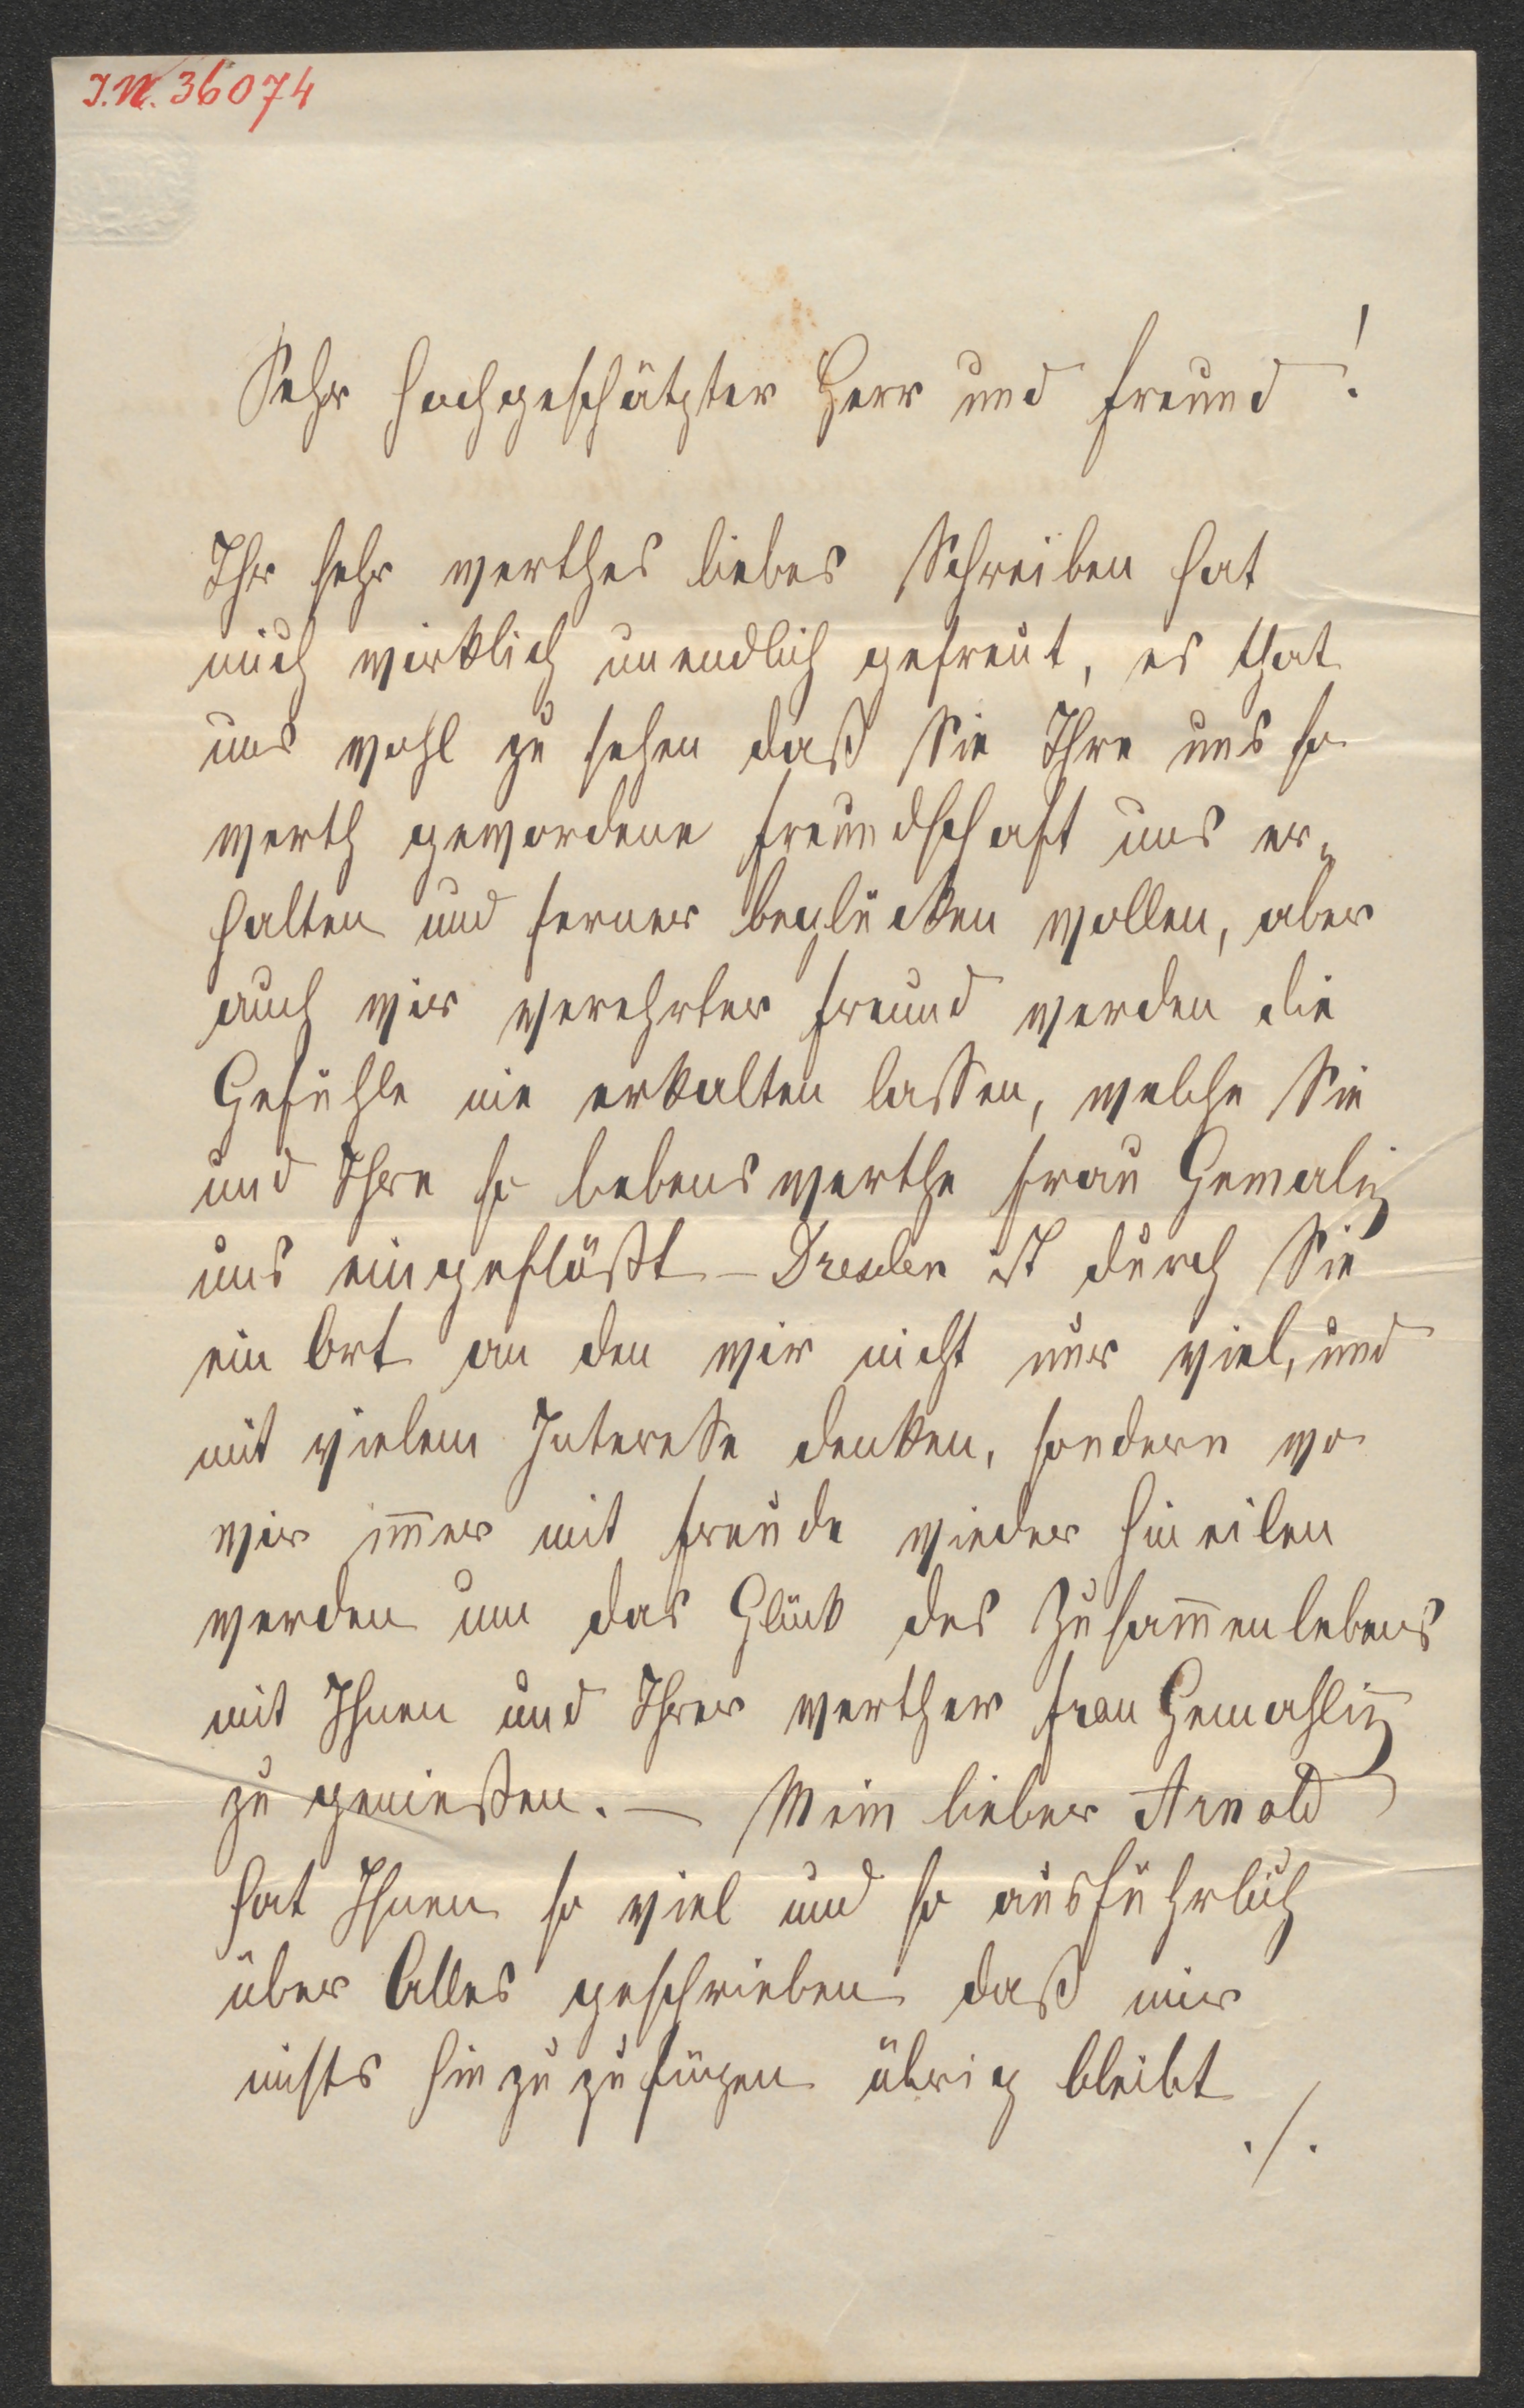 I.N. 36074
Sehr hochgeschätzter Herr und Freund!
Ihr sehr werthes liebes Schreiben hat
mich wirklich unendlich gefreut, es that
uns wohl zu sehen daß Sie Ihre uns so
werth gewordene Freundschaft uns er„
halten und ferner beglücken wollen, aber
auch wir verehrter Freund werden die
Gefühle nie erkalten lassen, welche Sie
und Ihre so liebenswerthe Frau Gemalin
uns eingeflößt – Dresden ist durch Sie
ein Ort an den wir nicht nur viel, und
mit vielem Interesse denken, sondern wo
wir im̅er mit Freude wieder hineilen
werden um das Glück des Zusam̅enlebens
mit Ihnen und Ihrer werther Frau Gemahlin̅
zu genießen. — Mein lieber Arnold
hat Ihnen so viel und so ausführlich
über Alles geschrieben daß mir
nichts hinzuzufügen übrig bleibt
./.